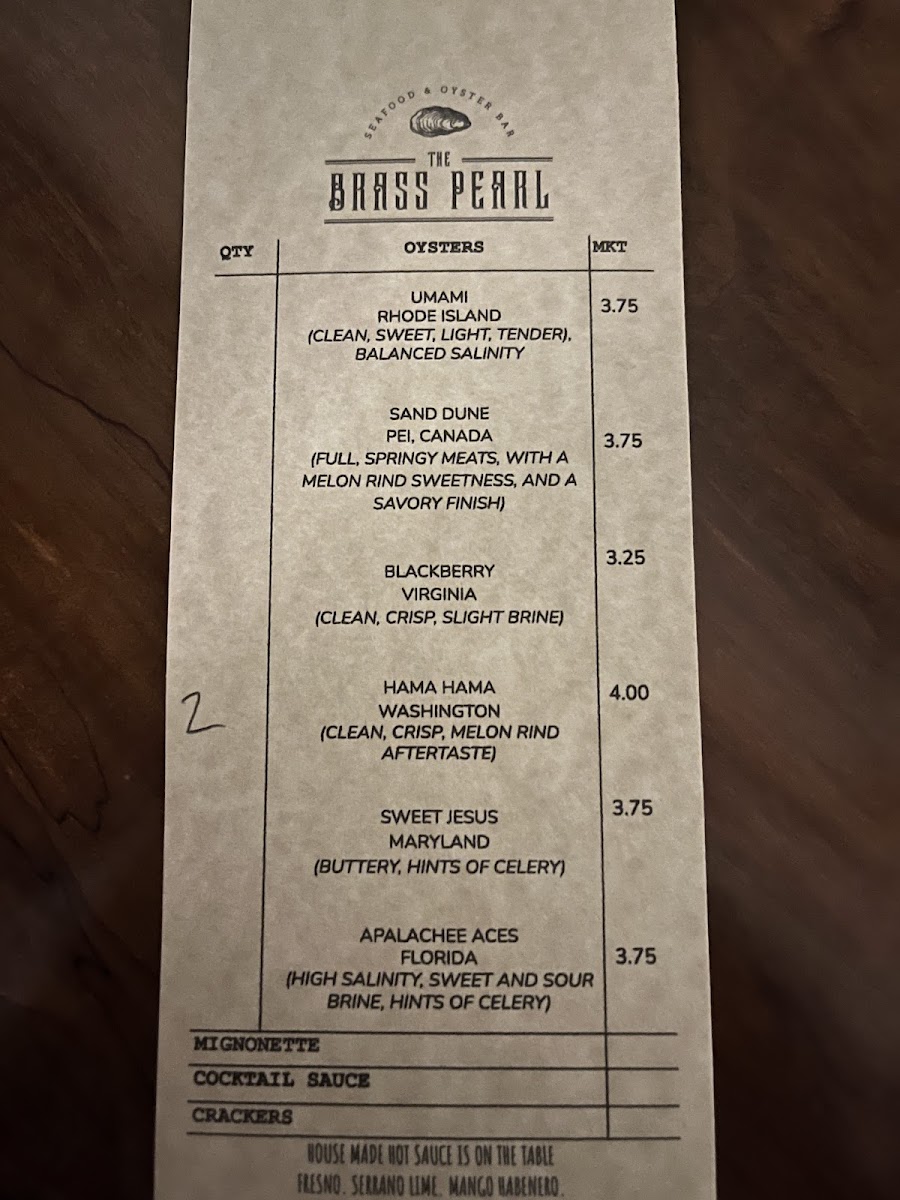 SEAFOOD & OYSTER BAR
THE
BRASS PEARL
QTY OYSTERS MKT
UMAMI
RHODE ISLAND 3.75
(CLEAN, SWEET, LIGHT, TENDER),
BALANCED SALINITY
SAND DUNE
PEI, CANADA 3.75
(FULL, SPRINGY MEATS, WITH A
MELON RIND SWEETNESS, AND A
SAVORY FINISH)
3.25
BLACKBERRY
VIRGINIA
(CLEAN, CRISP, SLIGHT BRINE)
HAMA HAMA 4.00
2 WASHINGTON
(CLEAN, CRISP, MELON RIND
AFTERTASTE)
SWEET JESUS 3.75
MARYLAND
(BUTTERY, HINTS OF CELERY)
APALACHEE ACES
FLORIDA 3.75
(HIGH SALINITY, SWEET AND SOUR
BRINE, HINTS OF CELERY)
MIGNONETTE
COCKTAIL SAUCE
CRACKERS
HOUSE MADE HOT SAUCE IS ON THE TABLE
FRESNO. SERRANO LIME. MANGO HABENERO.